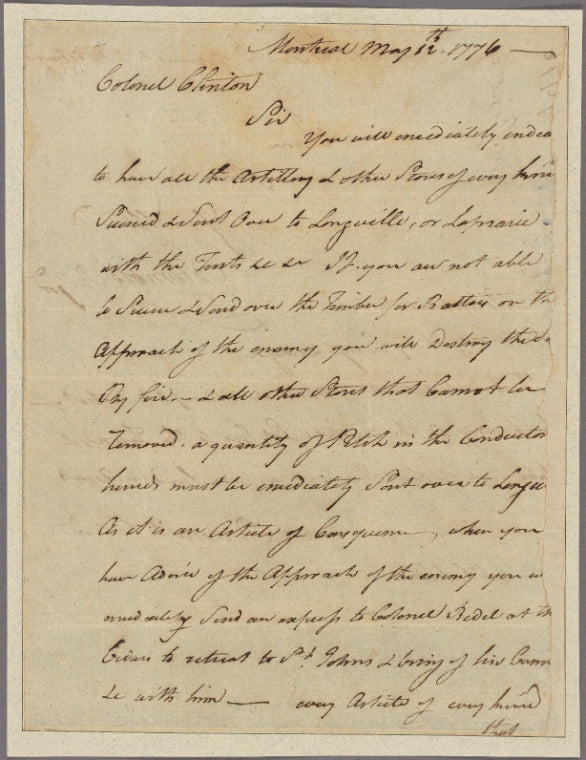 Montreal May 12th. 1776 —
Colonel Clinton
Sir
You will imediately indea
to have all the Artillery & other Stores of every kind
Secured & Sent Over to Longville, or Laprarie
with the Tents &c &c If you are not able
to Secure & Send over the Timber for Battoes on th
Approach of the enemy you will Destroy the
By fire — & all other Stores that Cannot be
removed. a quantity of Pitch in the Conductor
hands must be imediately Sent over to Longu
As it is an Article of Consequence, when you
have Advice of the Approach of the enemy you w
imediately Send an express to Colonel Bedel at th
Cedars to retreat to St. Johns & bring of his Cann
&c with him — every Article of every kind
that